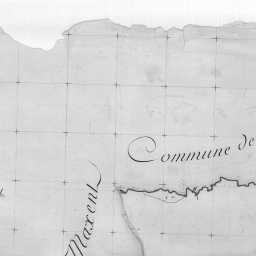 Commune de
Maxent